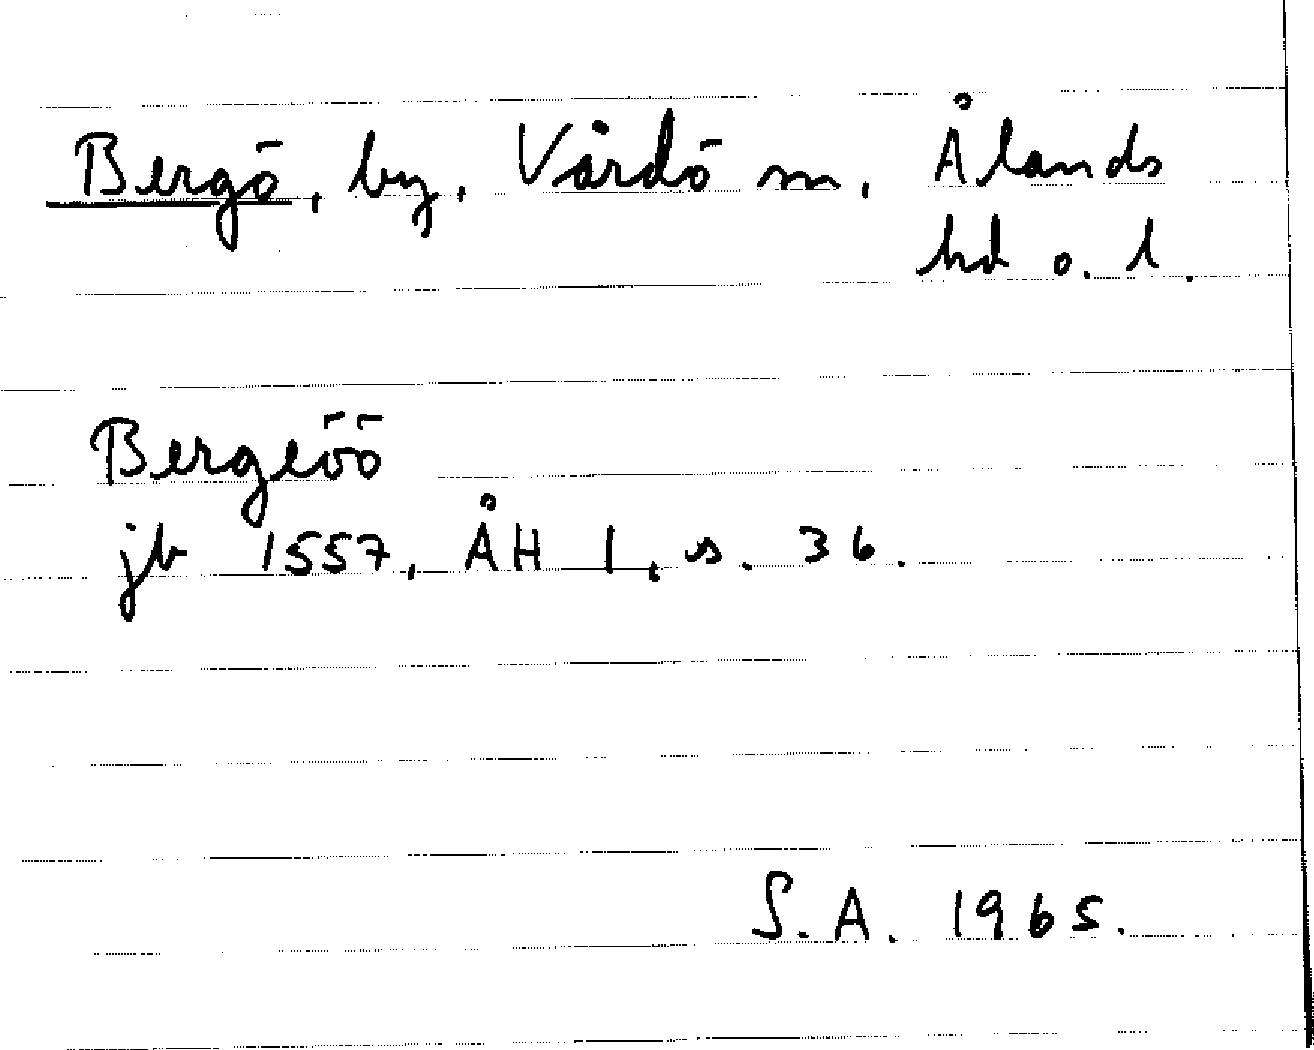 Bergö, by, Vårdö sn, Ålands
hd o. l.
Bergeöö
jb 1557, ÅH 1, s. 36.
S.A. 1965.